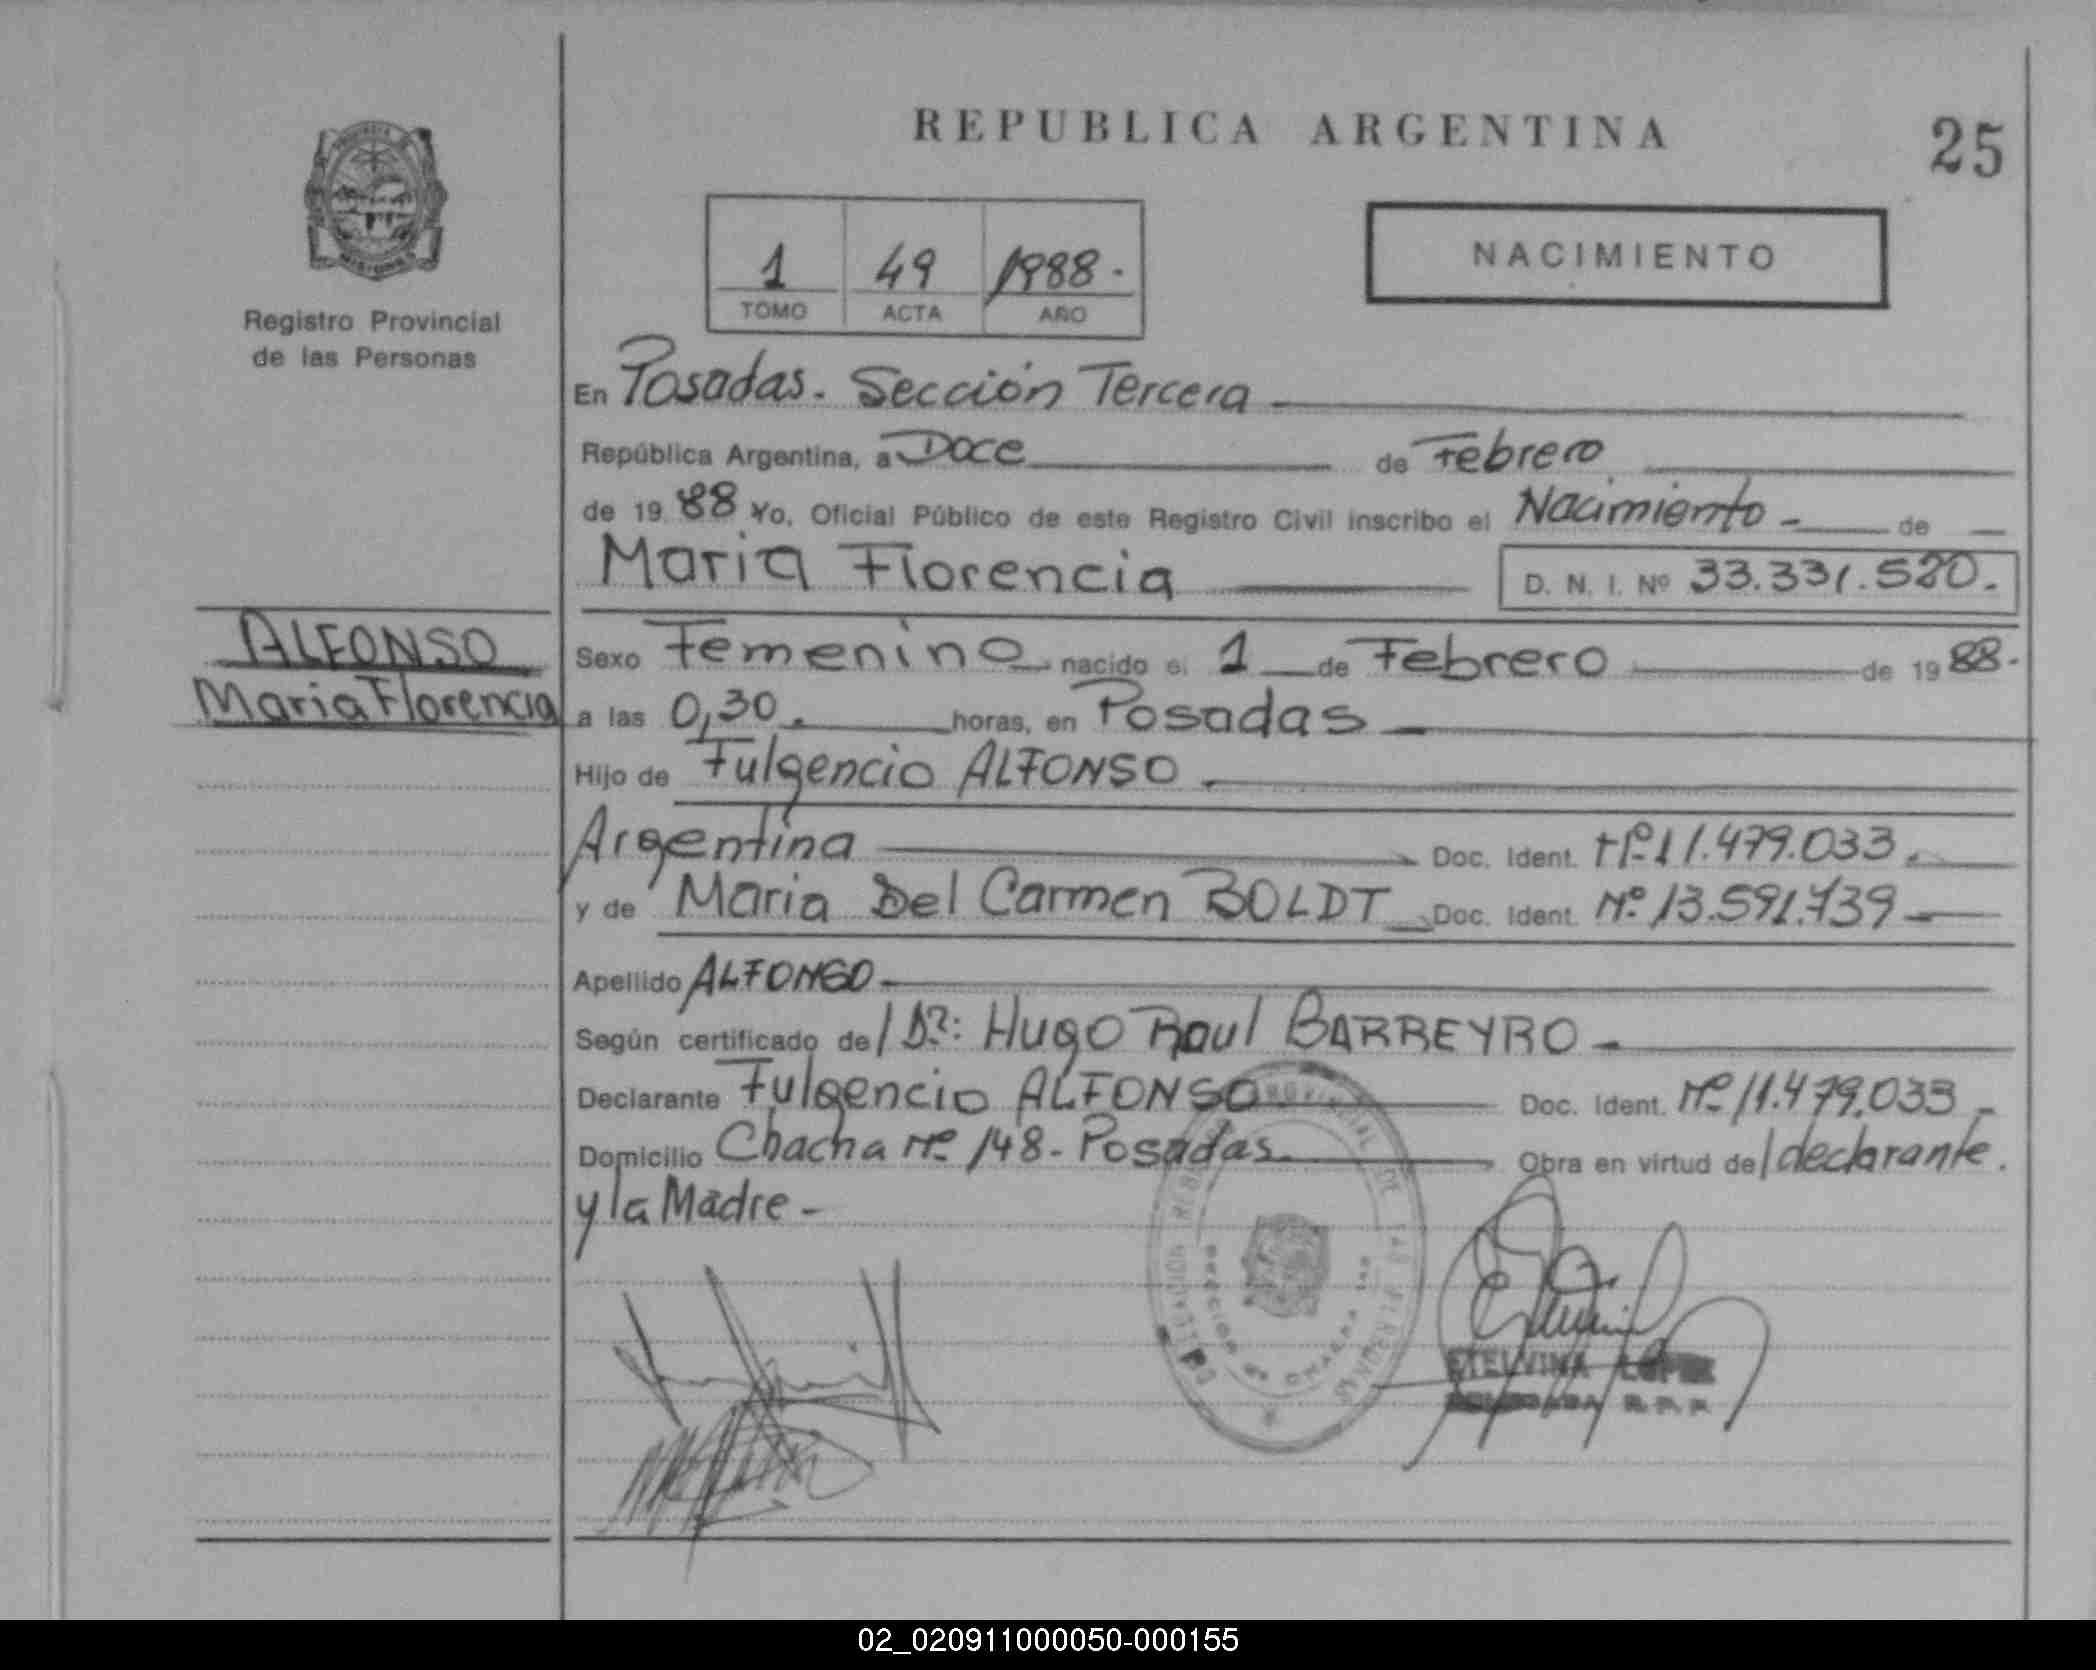 REPUBLICA ARGENTINA
25
1 49 1988.
TOMO ACTA AÑO
NACIMIENTO
Registro Provincial
de las Personas
En Posadas. Sección Tercera
República Argentina, a Doce de Febrero
de 19 88 Yo, Oficial Público de este Registro Civil inscribo el Nacimiento - de
Maria Florencia D. N. I. Nº 33.331.520.
ALFONSO
Maria Florencia
Sexo Femenino nacido el 1 de Febrero de 19 88.
a las 0,30. horas, en Posadas
Hijo de Fulgencio ALFONSO
Argentina Doc. Ident. Nº 11.479.033.
y de Maria Del Carmen BOLDT Doc. Ident. Nº 13.591.739
Apellido ALFONSO
Según certificado de/ Dr.: Hugo Raul BARREYRO
Declarante Fulgencio ALFONSO Doc. Ident. Nº 11.479.033
Domicilio Chacha Nº 148 - Posadas. Obra en virtud de/ declarante
y la Madre -
ETELVINA LOPEZ
02_020911000050-000155